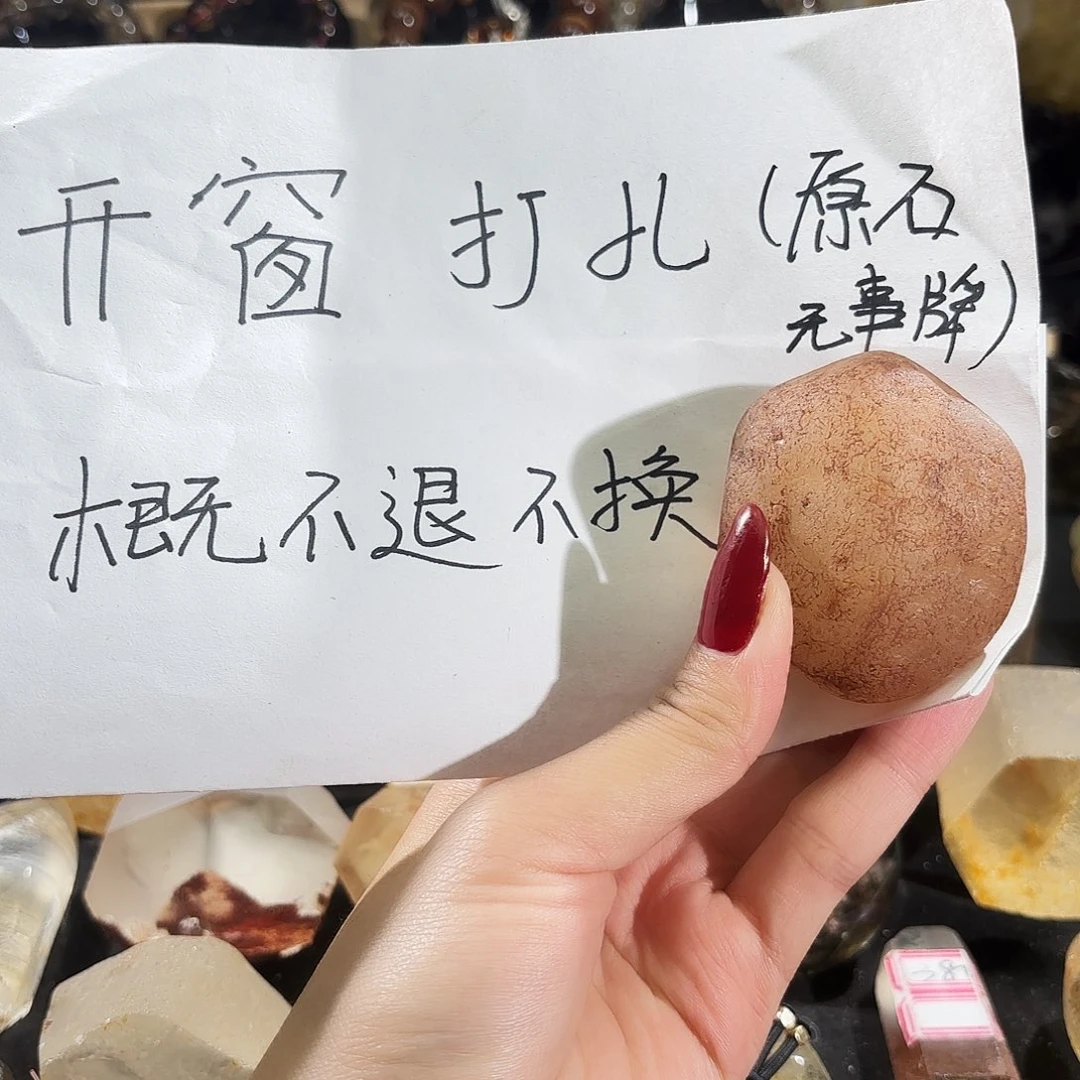 开窗 打扎 (原石
无事牌)
概不退不换